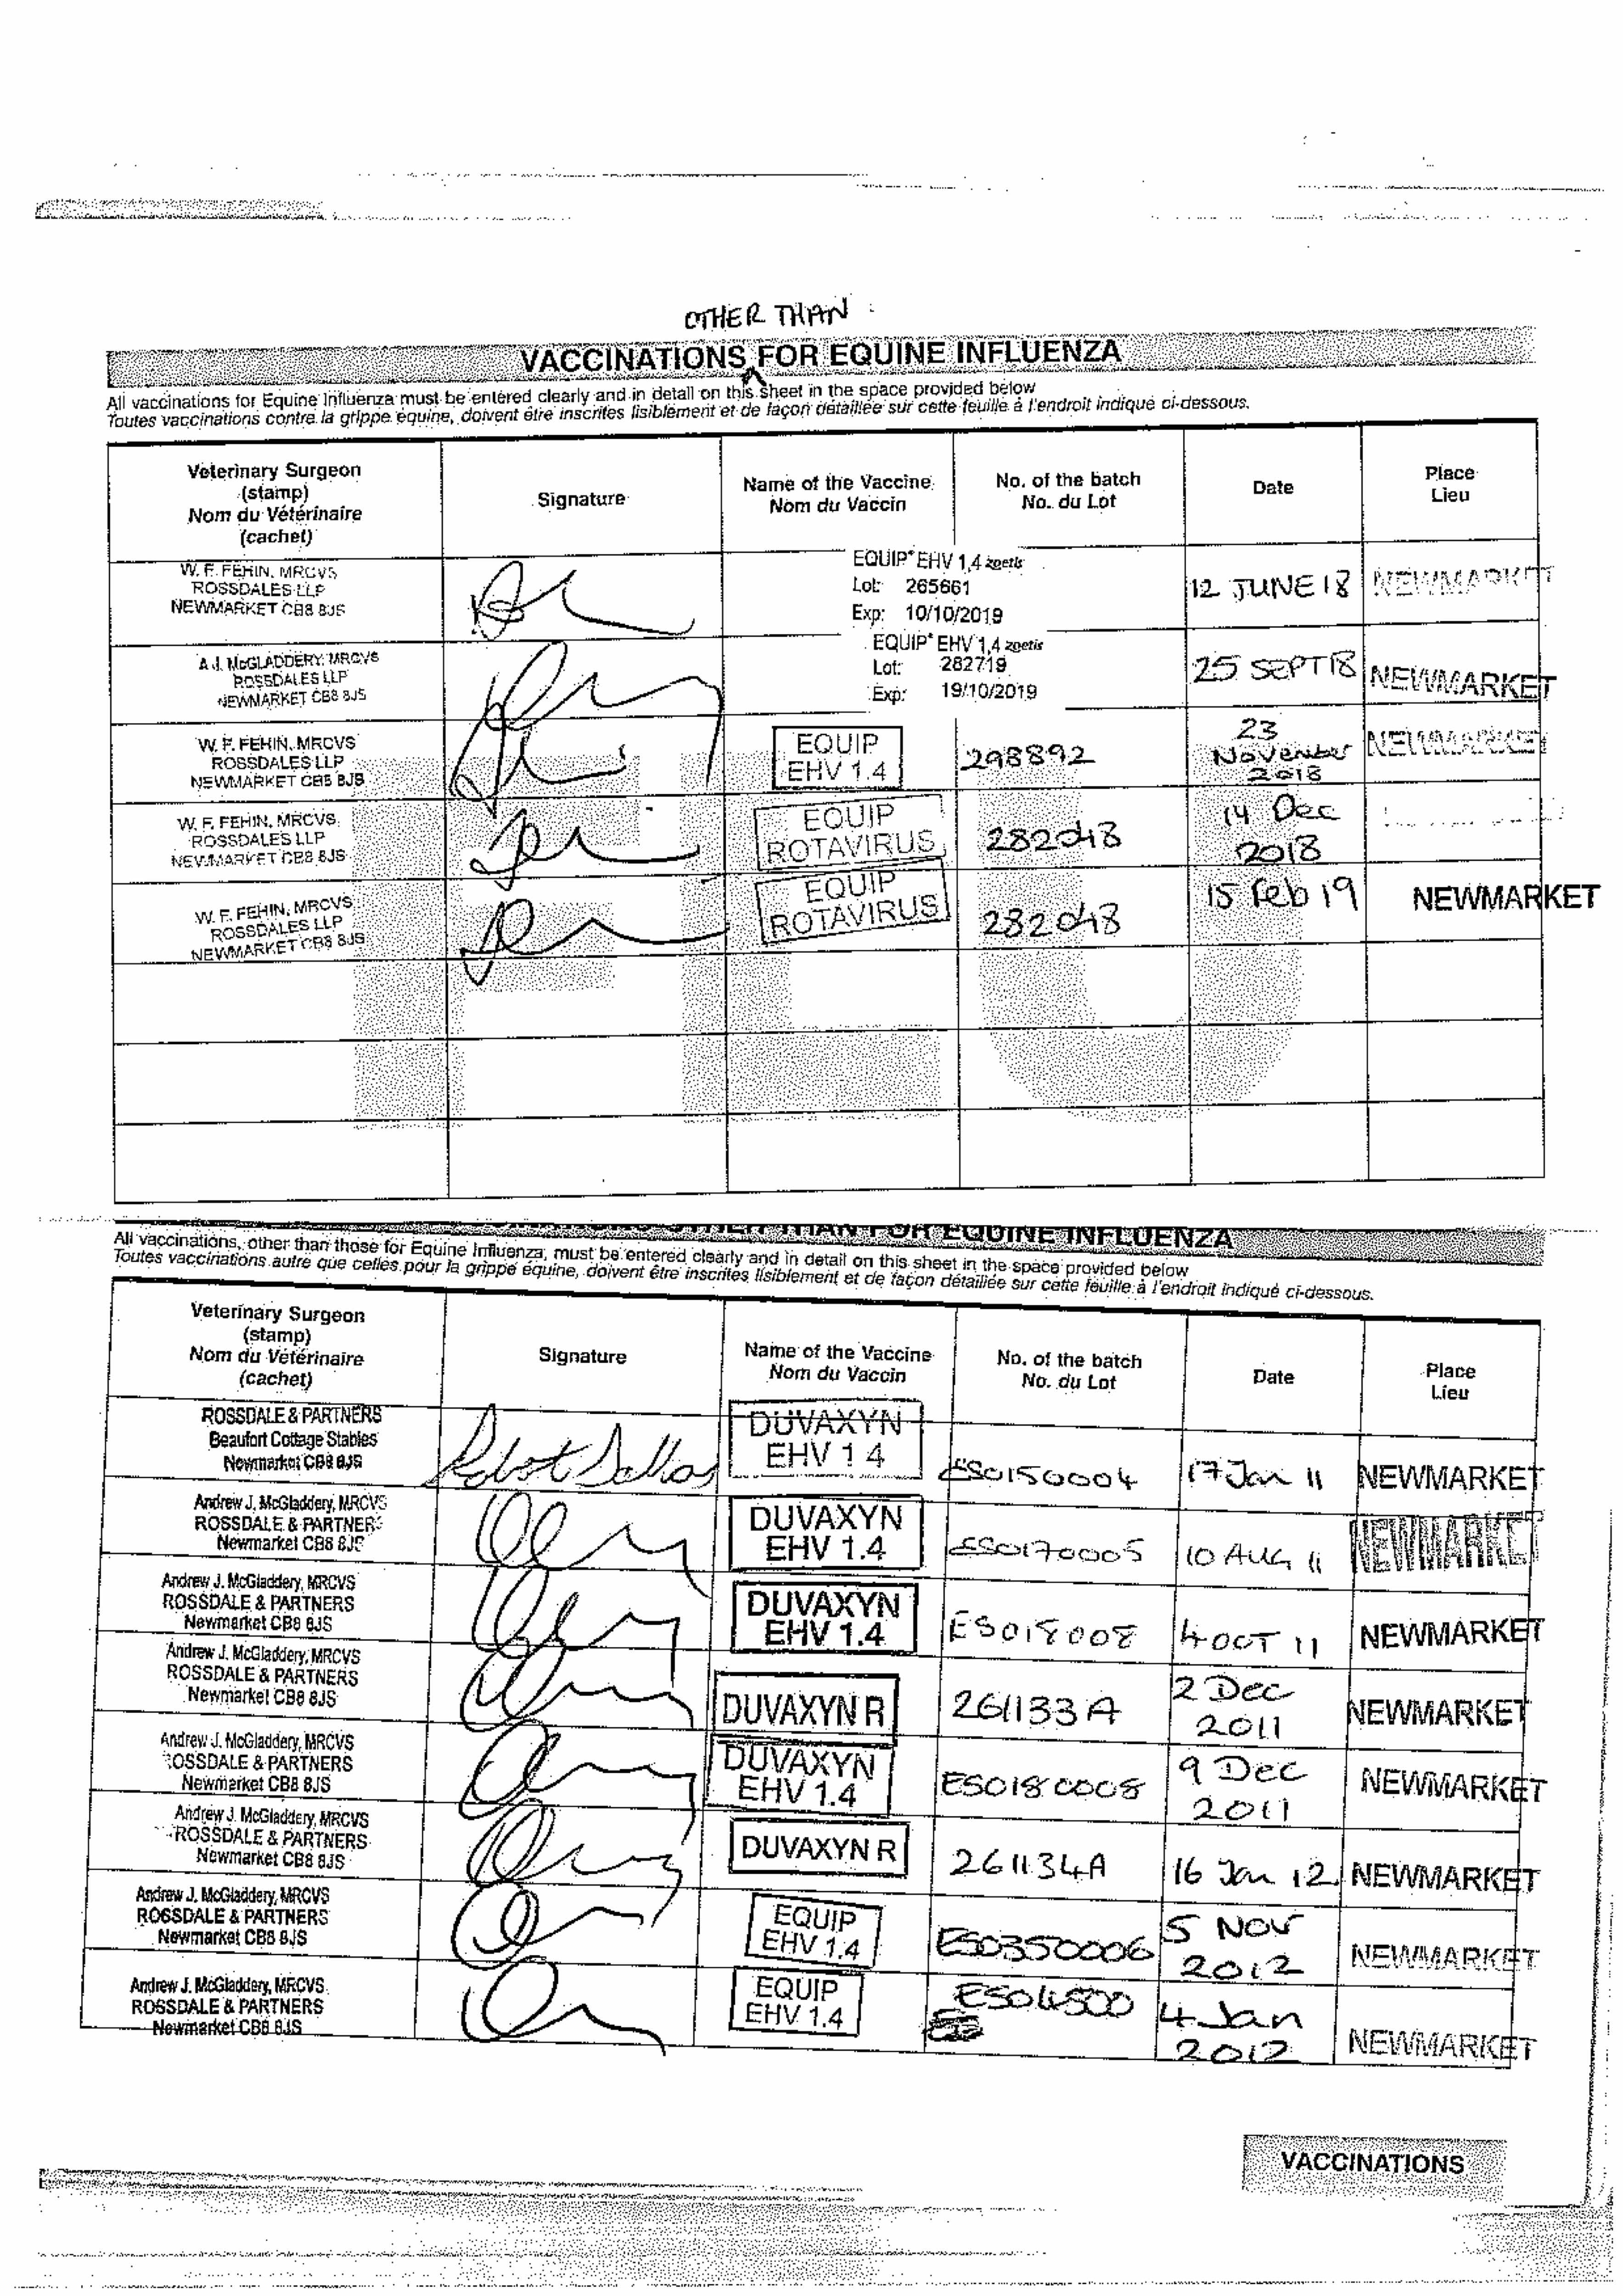 OTHER THAN :
VACCINATIONS FOR EQUINE INFLUENZA
All vaccinations for Equine Influenza must be entered clearly and in detail on this sheet in the space provided below
Toutes vaccinations contre la grippe équine, doivent être inscrites lisiblement et de façon détaillée sur cette feuille à l'endroit indiqué ci-dessous.
Veterinary Surgeon
(stamp)
Nom du Vétérinaire
(cachet)
Signature
Name of the Vaccine
Nom du Vaccin
No. of the batch
No. du Lot
Date
Place
Lieu
W. F. FEHIN, MRCVS
ROSSDALES LLP
NEWMARKET CB8 8JS
EQUIP EHV 1,4 zoetis
Lot: 265661
Exp: 10/10/2019
12 JUNE 18
NEWMARKET
A.J. McGLADDERY, MRCVS
ROSSDALES LLP
NEWMARKET CB8 8JS
EQUIP EHV 1,4 zoetis
Lot: 282719
Exp: 19/10/2019
25 SEPT 18
NEWMARKET
W. F. FEHIN, MRCVS
ROSSDALES LLP
NEWMARKET CB8 8JS
EQUIP
EHV 1.4
298892
23
November
2018
NEWMARKET
W. F. FEHIN, MRCVS
ROSSDALES LLP
NEWMARKET CB8 8JS
EQUIP
ROTAVIRUS
282048
14 Dec
2018
W. F. FEHIN, MRCVS
ROSSDALES LLP
NEWMARKET CB8 8JS
EQUIP
ROTAVIRUS
282048
15 Feb 19
NEWMARKET
OTHER THAN FOR EQUINE INFLUENZA
All vaccinations, other than those for Equine Influenza, must be entered clearly and in detail on this sheet in the space provided below
Toutes vaccinations autre que celles pour la grippe équine, doivent être inscrites lisiblement et de façon détaillée sur cette feuille à l'endroit indiqué ci-dessous.
Veterinary Surgeon
(stamp)
Nom du Vétérinaire
(cachet)
Signature
Name of the Vaccine
Nom du Vaccin
No. of the batch
No. du Lot
Date
Place
Lieu
ROSSDALE & PARTNERS
Beaufort Cottage Stables
Newmarket CB8 8JS
DUVAXYN
EHV 1 4
ES0150004
17 Jan 11
NEWMARKET
Andrew J. McGladdery, MRCVS
ROSSDALE & PARTNERS
Newmarket CB8 8JS
DUVAXYN
EHV 1.4
ES0170005
10 AUG 11
NEWMARKET
Andrew J. McGladdery, MRCVS
ROSSDALE & PARTNERS
Newmarket CB8 8JS
DUVAXYN
EHV 1.4
ES018008
4 OCT 11
NEWMARKET
Andrew J. McGladdery, MRCVS
ROSSDALE & PARTNERS
Newmarket CB8 8JS
DUVAXYN R
261133A
2 Dec
2011
NEWMARKET
Andrew J. McGladdery, MRCVS
ROSSDALE & PARTNERS
Newmarket CB8 8JS
DUVAXYN
EHV 1.4
ES0180008
9 Dec
2011
NEWMARKET
Andrew J. McGladdery, MRCVS
ROSSDALE & PARTNERS
Newmarket CB8 8JS
DUVAXYN R
261134A
16 Jan 12
NEWMARKET
Andrew J. McGladdery, MRCVS
ROSSDALE & PARTNERS
Newmarket CB8 8JS
EQUIP
EHV 1.4
ES0350006
5 NOV
2012
NEWMARKET
Andrew J. McGladdery, MRCVS
ROSSDALE & PARTNERS
Newmarket CB8 8JS
EQUIP
EHV 1.4
4 Jan
2012
NEWMARKET
VACCINATIONS